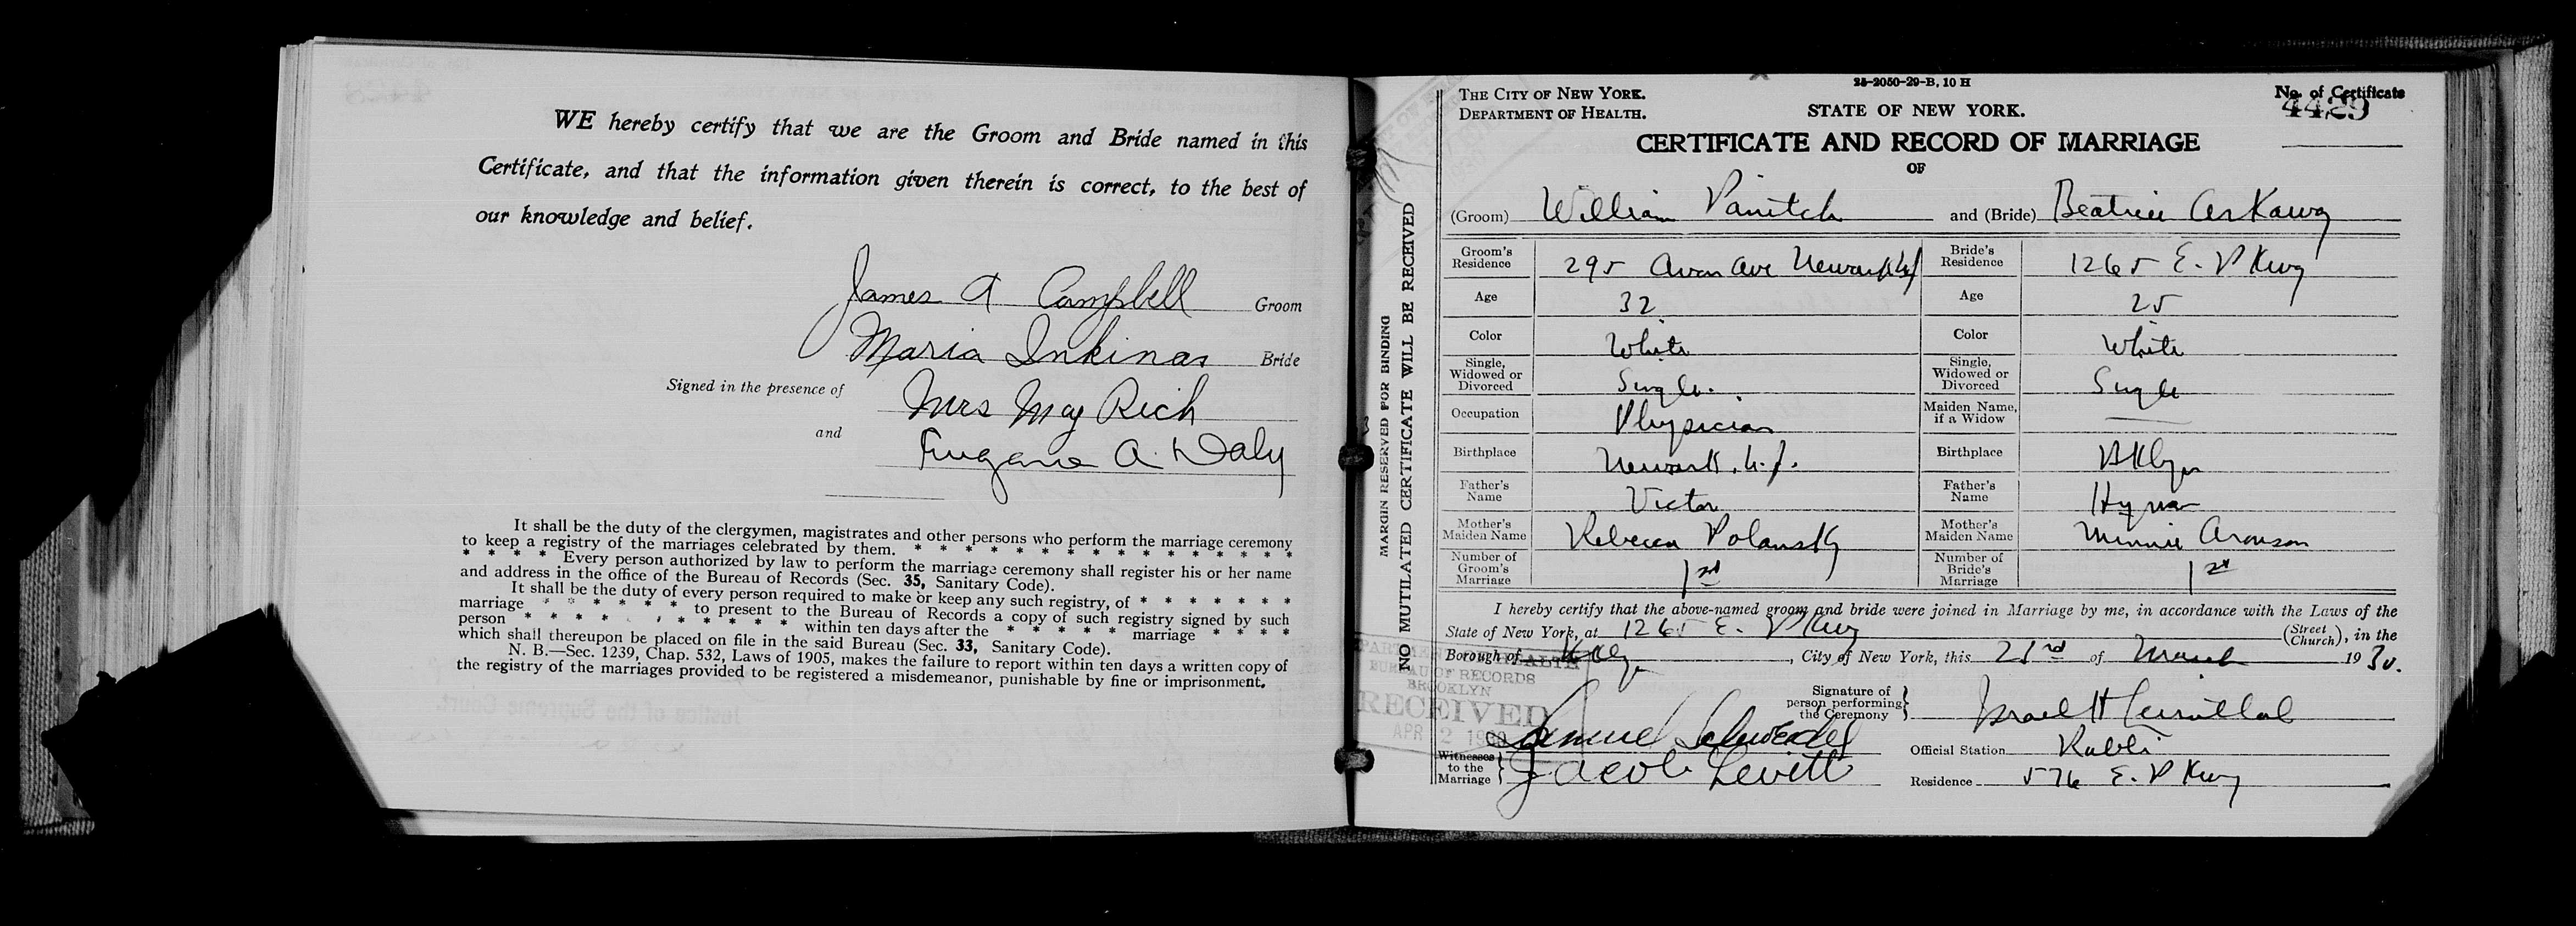 WE hereby certify that we are the Groom and Bride named in this
Certificate, and that the information given therein is correct, to the best of
our knowledge and belief.
James A Campbell Groom
Maria Inkinas Bride
Signed in the presence of
Mrs May Rich
and
Eugene A. Daly
It shall be the duty of the clergymen, magistrates and other persons who perform the marriage ceremony
to keep a registry of the marriages celebrated by them. * * * * * * * * * * * * * * *
* * * * Every person authorized by law to perform the marriage ceremony shall register his or her name
and address in the office of the Bureau of Records (Sec. 35, Sanitary Code).
It shall be the duty of every person required to make or keep any such registry, of * * * * * * *
marriage * * * * * * to present to the Bureau of Records a copy of such registry signed by such
person * * * * * * * * * * within ten days after the * * * * * marriage * * * *
which shall thereupon be placed on file in the said Bureau (Sec. 33, Sanitary Code).
N. B.—Sec. 1239, Chap. 532, Laws of 1905, makes the failure to report within ten days a written copy of
the registry of the marriages provided to be registered a misdemeanor, punishable by fine or imprisonment.
MARGIN RESERVED FOR BINDING
NO MUTILATED CERTIFICATE WILL BE RECEIVED
25-2050-29-B, 10 H
THE CITY OF NEW YORK.
DEPARTMENT OF HEALTH.
STATE OF NEW YORK.
No. of Certificate
4429
CERTIFICATE AND RECORD OF MARRIAGE
OF
(Groom) William Panitch and (Bride) Beatrice Arkawy
Groom's Residence 295 Avon Ave Newark NJ Bride's Residence 1265 E. P Kwy
Age 32 Age 25
Color White Color White
Single, Widowed or Divorced Single. Single, Widowed or Divorced Single
Occupation Physician Maiden Name, if a Widow —
Birthplace Newark. N.J. Birthplace BKlyn
Father's Name Victor Father's Name Hyman
Mother's Maiden Name Rebecca Polansky Mother's Maiden Name Minnie Aronson
Number of Groom's Marriage 1st Number of Bride's Marriage 1st
I hereby certify that the above-named groom and bride were joined in Marriage by me, in accordance with the Laws of the
State of New York, at 1265 E. P Kwy (Street Church), in the
Borough of Bklyn, City of New York, this of March 1930.
DEPARTMENT OF HEALTH
BUREAU OF RECORDS
BROOKLYN
RECEIVED
APR 2 1930
Signature of person performing the Ceremony Israel H Levinthal
Witnesses to the Marriage Samuel
Jacob Levitt
Official Station Rabbi
Residence 576 E. P Kwy